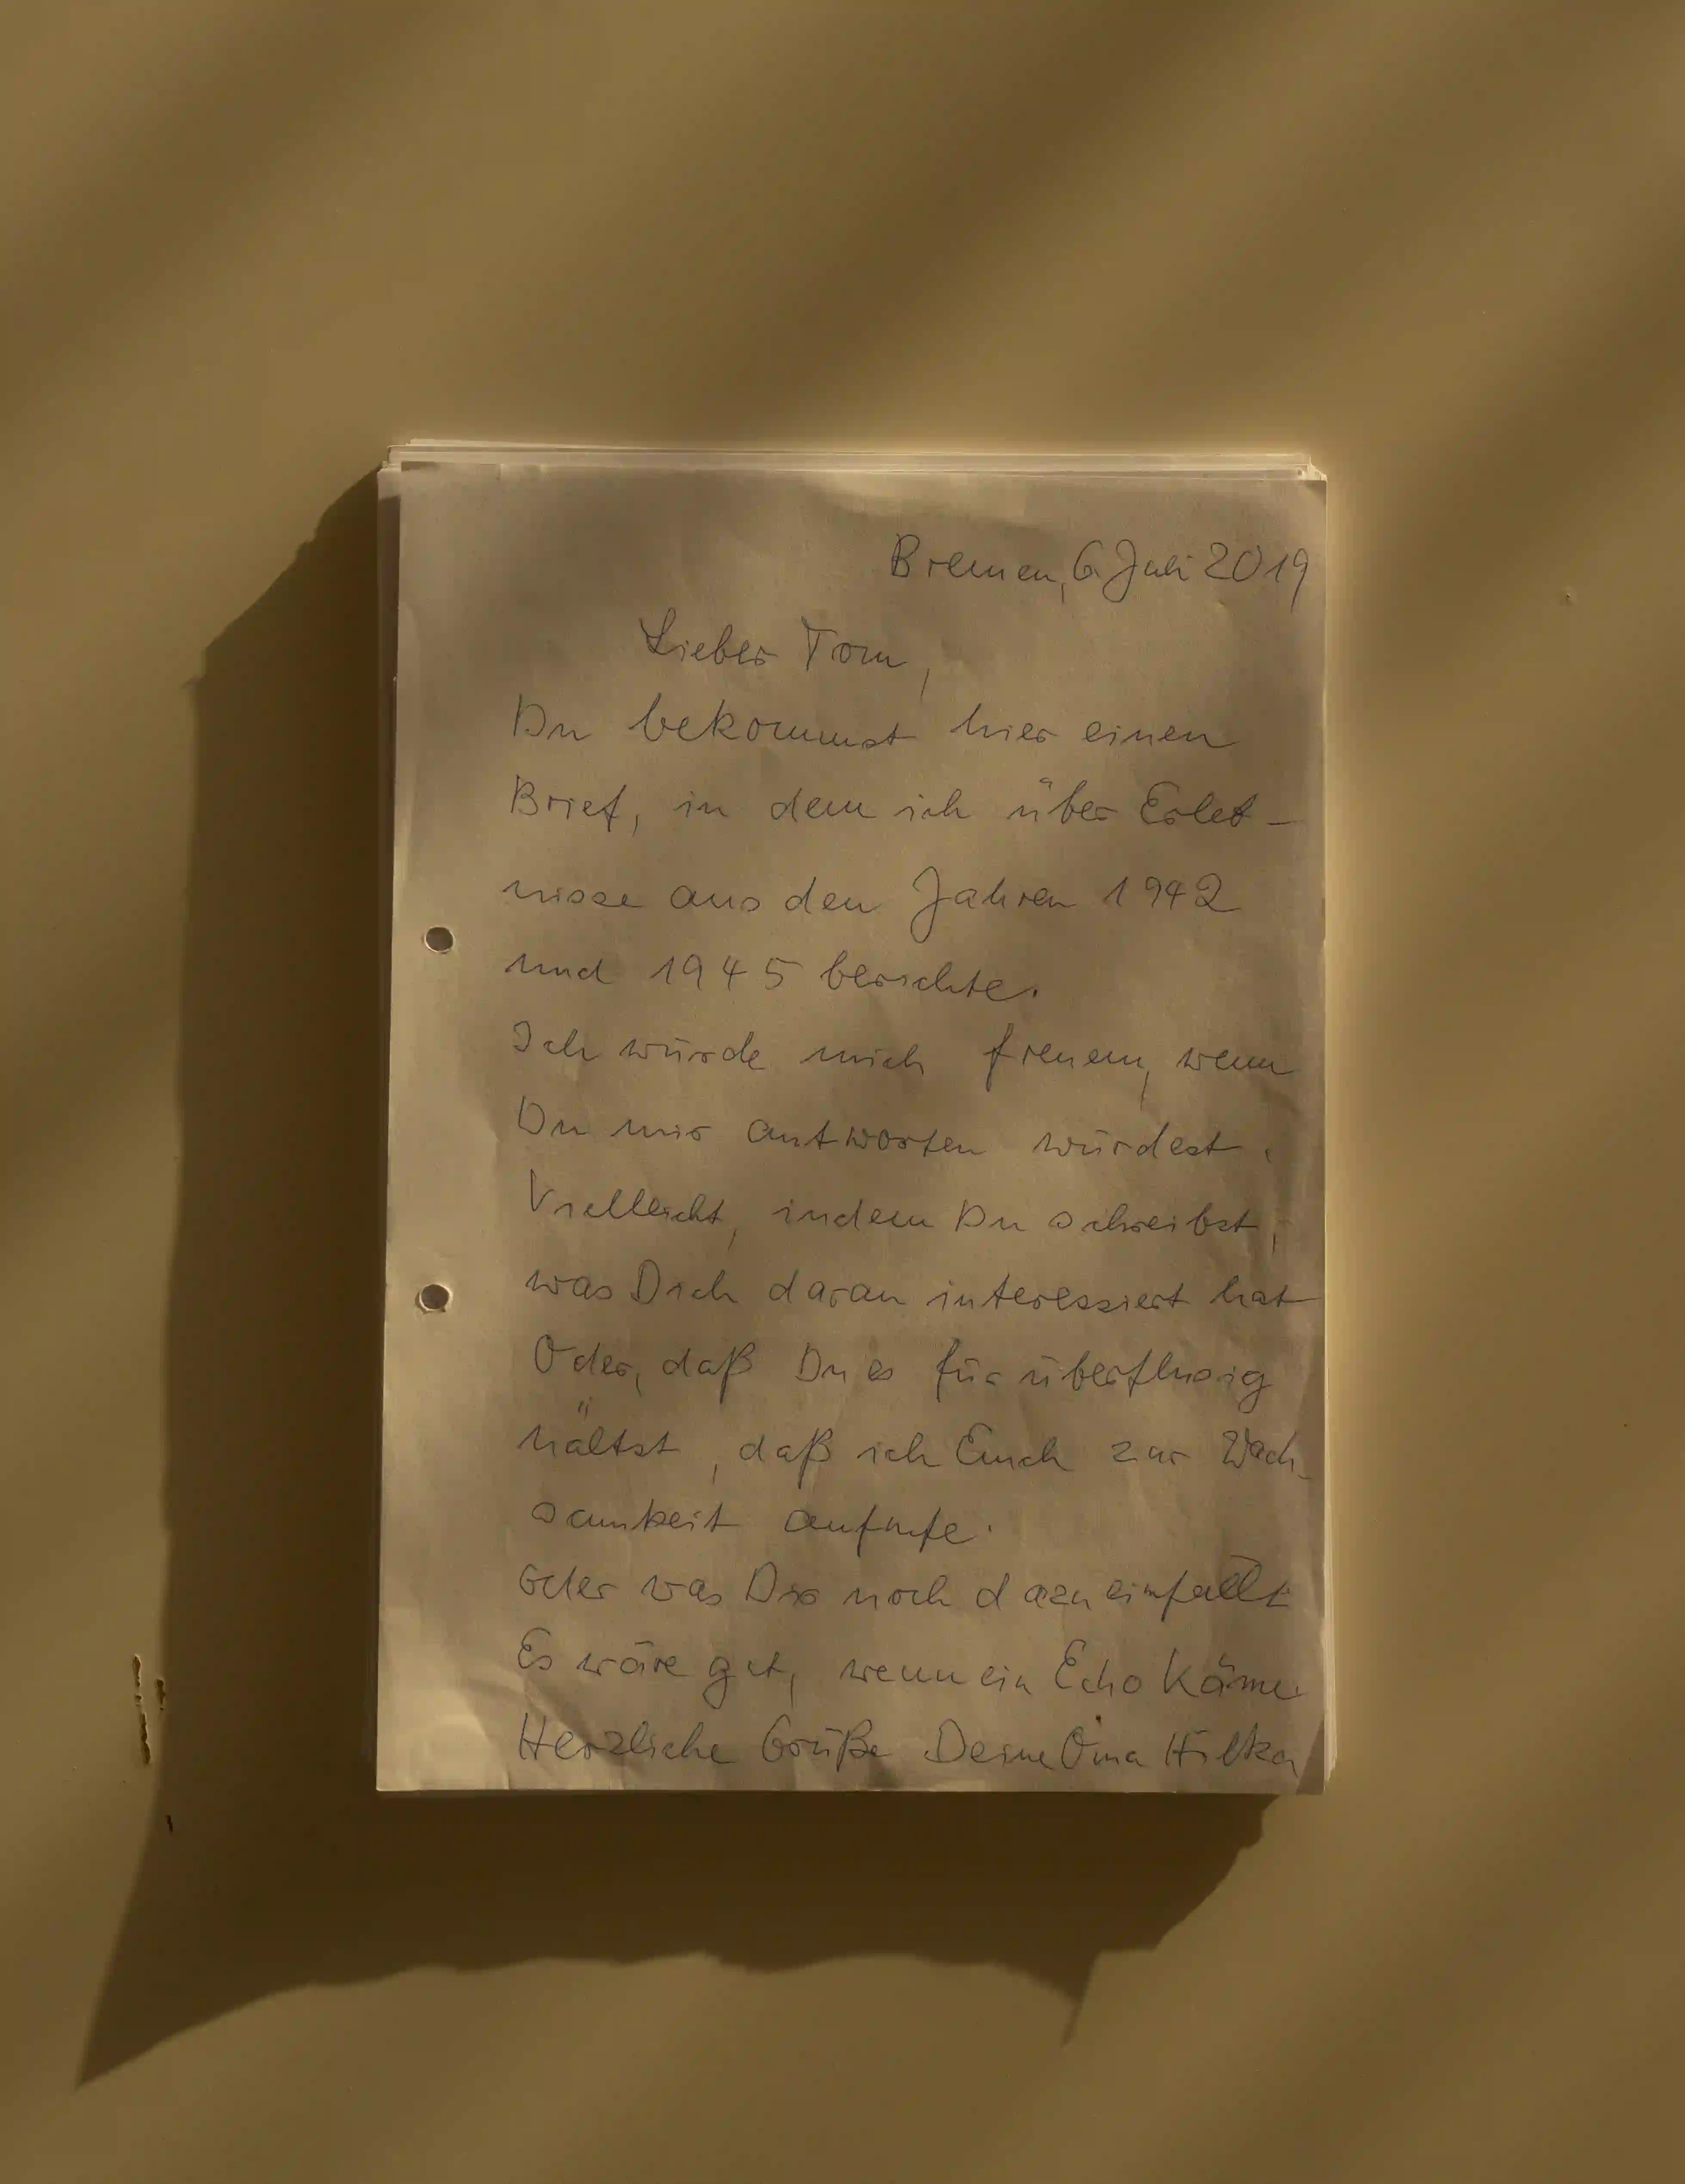 Bremen, 6. Juli 2019
Lieber Tom,
Du bekommst hier einen
Brief, in dem ich über Erleb-
nisse aus den Jahren 1942
und 1945 berichte.
Ich würde mich freuen, wenn
Du mir antworten würdest.
Vielleicht, indem Du schreibst,
was Dich daran interessiert hat
Oder, daß Du es für überflussig
hältst, daß ich Euch zur Wach-
samkeit aufrufe.
oder was Dir noch dazu einfällt
Es wäre gut, wenn ein Echo käme.
Herzliche Grüße Deine Oma Hilka